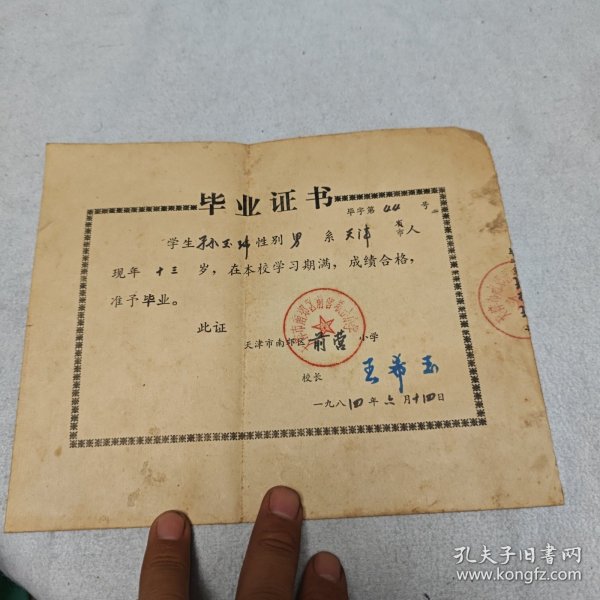 毕业证书
毕字第 44 号
学生 孙玉 性别 男 系 天津 省市 人
现年 十三 岁，在本校学习期满，成绩合格，
准予毕业。
此证
天津市南郊区 前营 小学
校长 王希玉
一九八四年六月十四日
孔夫子旧书网
www.kongfz.com